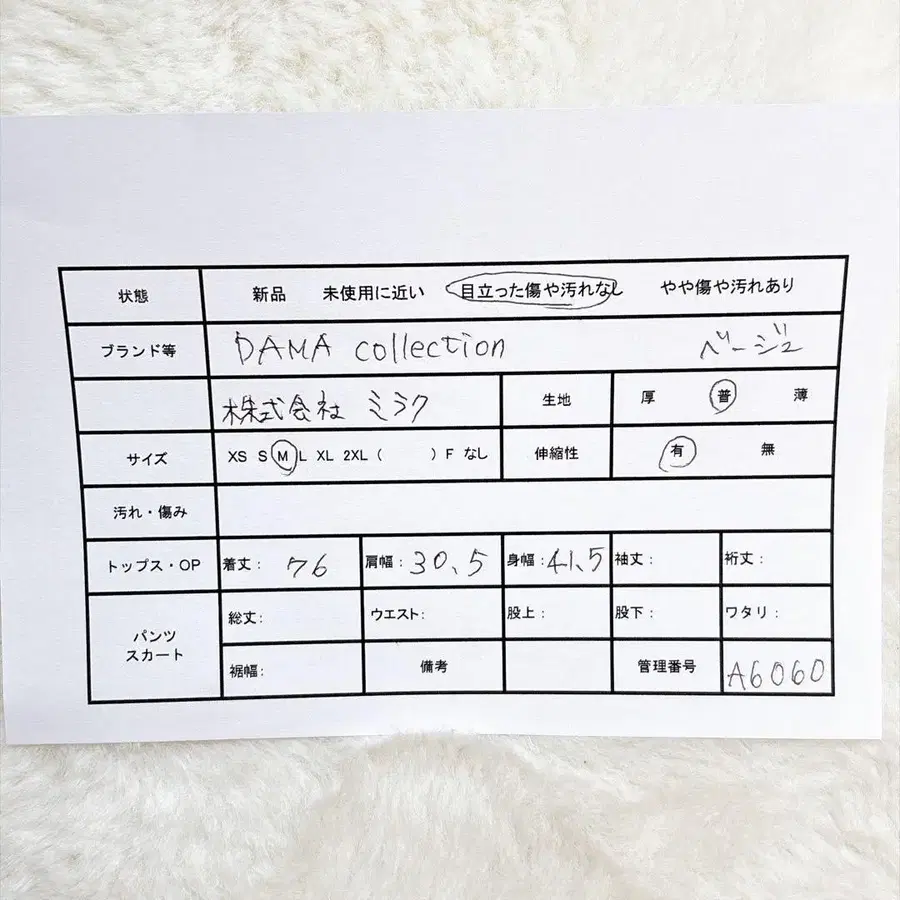 状態 新品 未使用に近い 目立った傷や汚れなし やや傷や汚れあり
ブランド等 DAMA collection ベージュ
株式会社 ミラク 生地 厚 普 薄
サイズ XS S M L XL 2XL ( ) F なし 伸縮性 有 無
汚れ・傷み
トップス・OP 着丈: 76 肩幅: 30.5 身幅: 41.5 袖丈: 裄丈:
パンツ スカート 総丈: ウエスト: 股上: 股下: ワタリ:
裾幅: 備考 管理番号 A6060